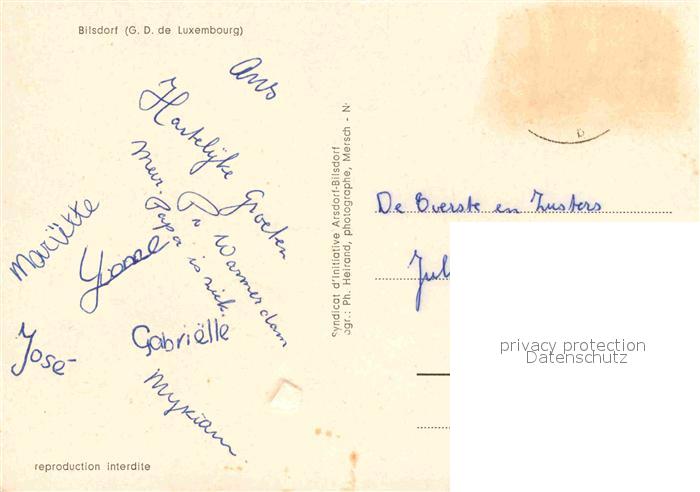 Bilsdorf (G. D. de Luxembourg)
Hartelijke Groeten
P. v Warmerdam
Mevr.
Papa is ziek.
Mariëtte
José
Gabriëlle
Myriam
Syndicat d'Initiative Arsdorf-Bilsdorf
ogr.: Ph. Heirand, photographe, Mersch - N
reproduction interdite
De Overste en Zusters
Jul
privacy protection
Datenschutz